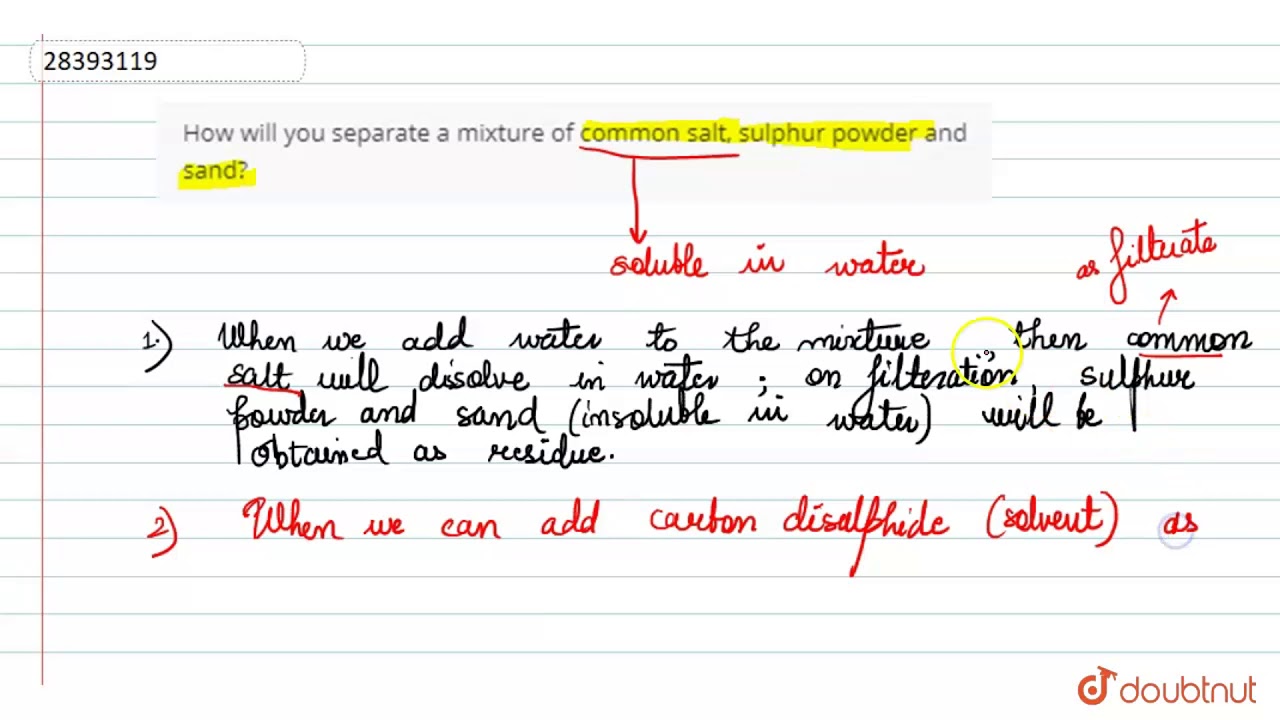 28393119
How will you separate a mixture of common salt, sulphur powder and
sand?
soluble in water
as filterate
1.) When we add water to the mixture, then common
salt will disolve in water; on filteration, sulphur
powder and sand (insoluble in water) will be
obtained as residue.
2) When we can add carbon disalphide (solvent) as
doubtnut